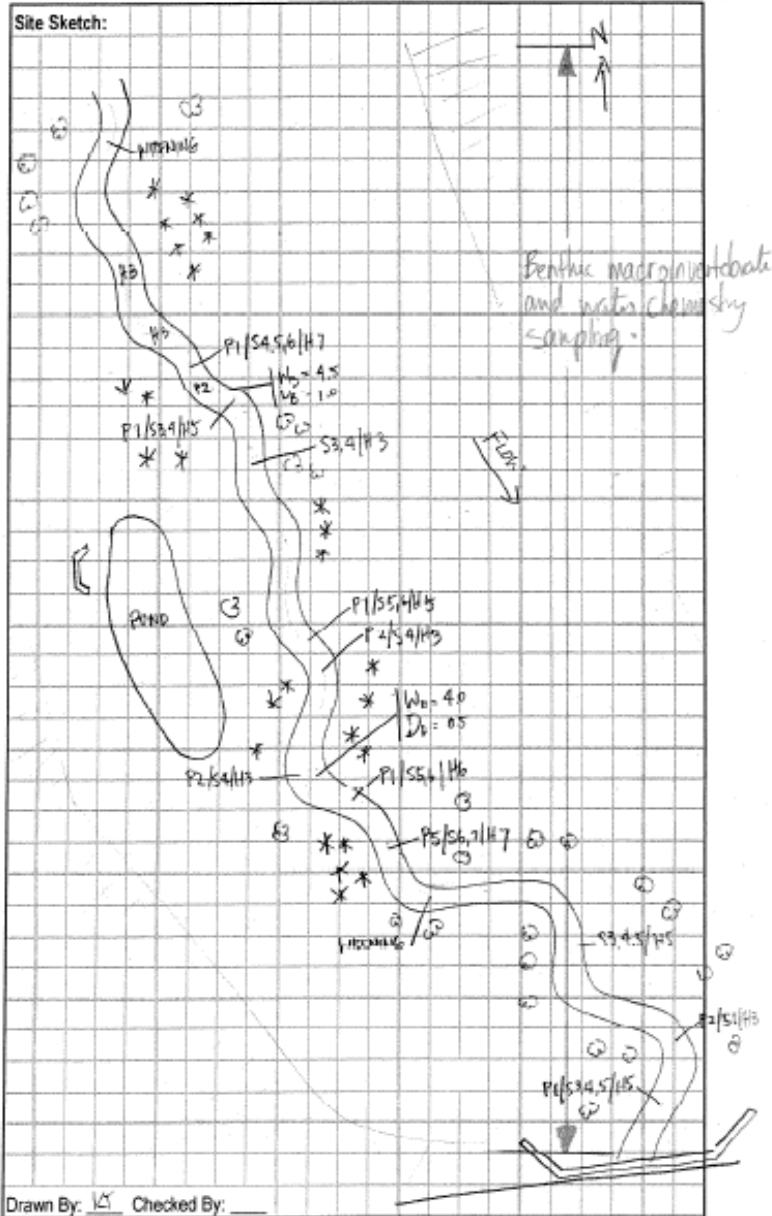 Site Sketch:
N
WIDENING
Benthic macroinvertebrate
and water chemistry
sampling.
H3
H3
P1/S4,5,6/H7
P2
= 4.5
= 1.0
P1/S3,4/H5
S3,4/H3
FLOW
POND
P1/S5,6/H5
P2/S4/H3
WB = 4.0
DB = 0.5
P2/S4/H3
P1/S5,6/H6
P5/S6,7/H7
WIDENING
P3,4,5/H5
P1/S3,4,5/H5
Drawn By: Checked By: